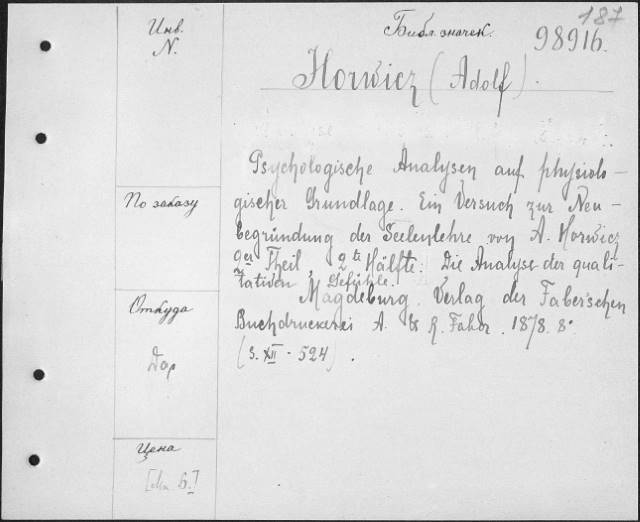 187
Инв.
N.
Библ. значек.
98916.
Horwicz (Adolf).
Psychologische Analysen auf physiolo-
gischer Grundlage. Ein Versuch zur Neu-
begründung der Seelenlehre von A. Horwicz
2er Theil, 2te Hälfte: Die Analyse der quali-
tativen Gefühle.
Magdeburg. Verlag der Faber'schen
Buchdruckerei A. & R. Faber. 1878. 8°
(S. XII - 524).
По заказу
Откуда
Дар
Цена